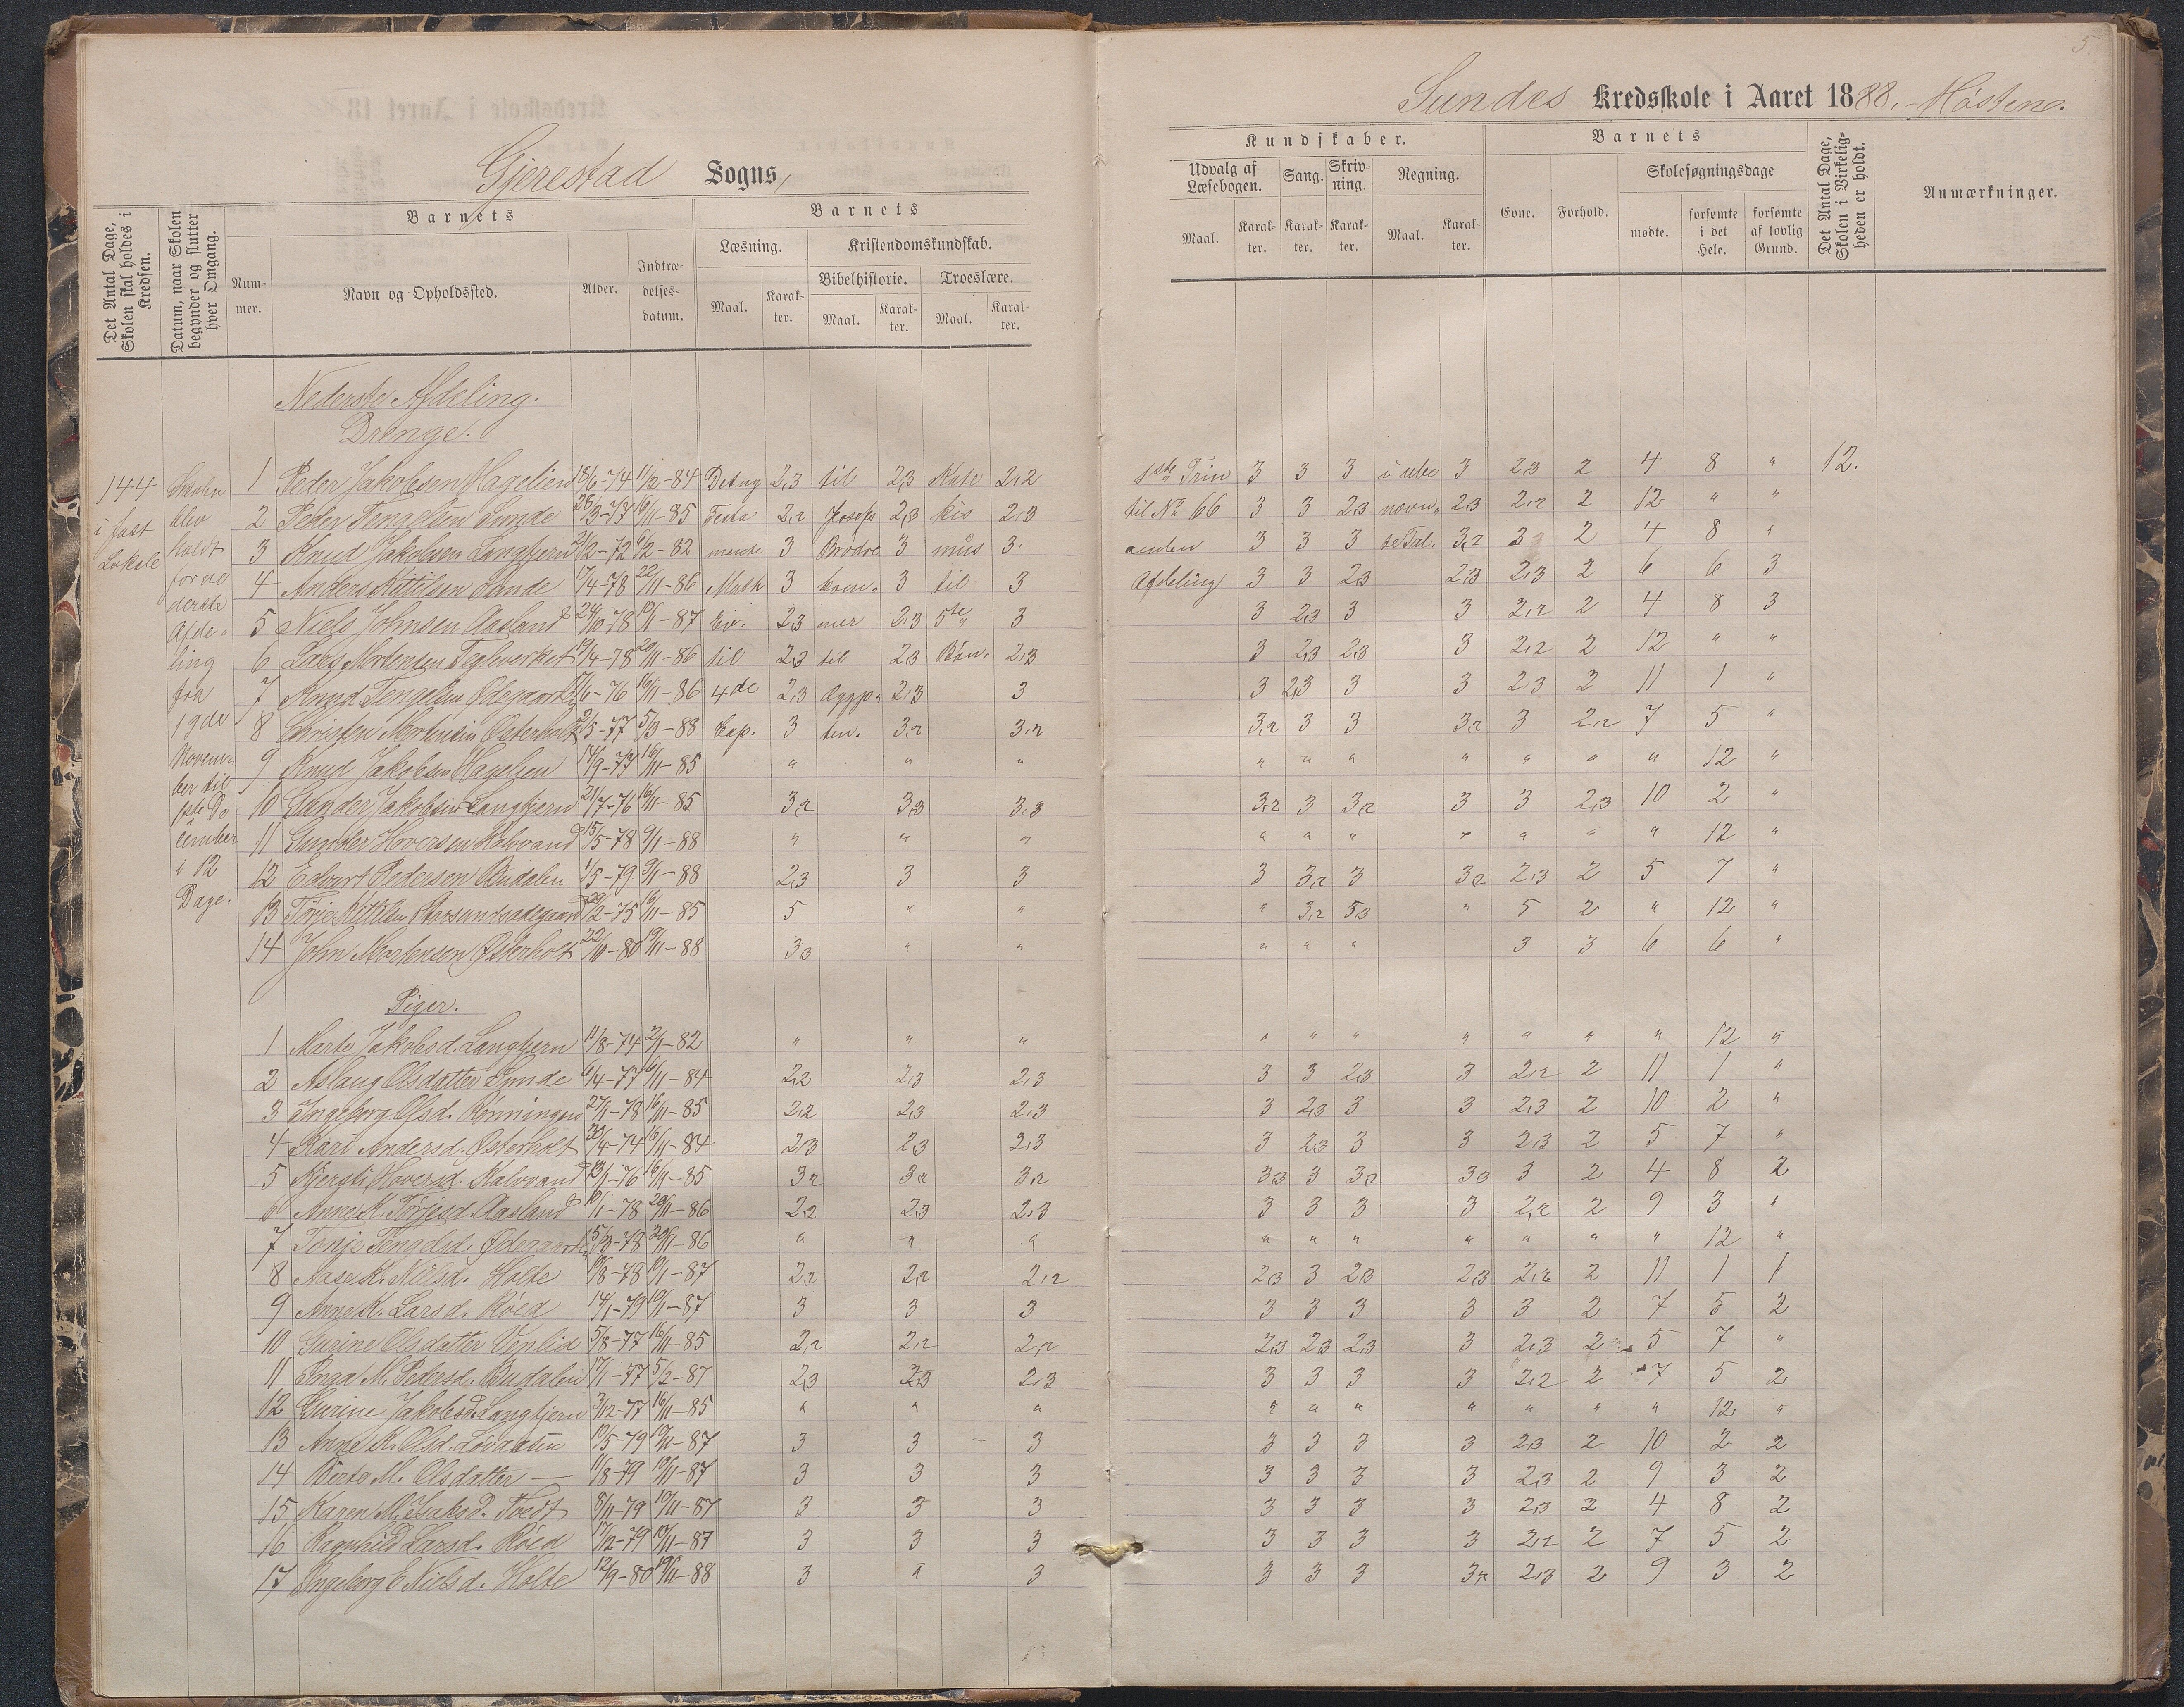 5
Gjerestad Sogns
Sundes Kredsskole i Aaret 1888. Høsten.
Det Antal Dage, Skolen skal holdes i Kredsen.
Datum, naar Skolen begynder og slutter hver Omgang.
Barnets
Nummer.
Navn og Opholdssted.
Alder.
Indtrædelsesdatum.
Barnets
Læsning.
Maal.
Karakter.
Kristendomskundskab.
Bibelhistorie.
Maal.
Karakter.
Troeslære.
Maal.
Karakter.
Kundskaber.
Udvalg af Læsebogen.
Maal.
Karakter.
Sang.
Karakter.
Skrivning.
Karakter.
Regning.
Maal.
Karakter.
Barnets
Evne.
Forhold.
Skolesøgningsdage
mødte.
forsømte i det Hele.
forsømte af lovlig Grund.
Det Antal Dage, Skolen i Virkeligheden er holdt.
Anmærkninger.
144 i fast Lokale
Skolen blev holdt for nederste Afdeling fra 19de November til 1ste December i 12 Dage.
Nederste Afdeling.
Drenge.
1 Peder Jakobsen Hagelien 18/6-74 11/2-84 Det ny 2,3 til 2,3 Kate 2,2 1ste Trin 3 3 3 i ube 3 2,3 2 4 8 " 12.
2 Peder Tengelsen Sunde 28/3-73 16/11-85 Testa 2,2 Josefs 2,3 kis 2,3 til No 66 3 3 2,3 nævn 2,3 2,2 2 12 " "
3 Knud Jakobsen Langtjern 21/2-72 9/2-82 mente 3 Brødre 3 mus 3 anden 3 3 3 te Tal. 3,2 2 2 4 8 "
4 Anders Kittilsen Sande 17/4-78 22/11-86 Math 3 kom 3 til 3 Afdeling 3 3 2,3 2,3 2,3 2 6 6 3
5 Niels Johnsen Aasland 24/6-78 19/1-87 Ev. 2,3 mer 2,3 5te 3 3 2,3 3 3 2,2 2 4 8 3
6 Lars Mortensen Teglverket 19/4-78 20/11-86 til 2,3 til 2,3 Bøn. 2,3 3 2,3 2,3 3 2,2 2 12 " "
7 Knud Tengelsen Ødegaard 17/6-76 16/11-86 4de 2,3 Ægyp 2,3 3 3 2,3 3 3 2,3 2 11 1 "
8 Christen Mortensen Østerholt 2/5-77 5/3-88 Kap. 3 ten. 3,2 3,2 3,2 3 3 3,2 3 2,2 7 5 "
9 Knud Jakobsen Hagelien 14/9-73 16/11-85 " " " " " " " " " " 12 "
10 Sander Jakobsen Langtjern 21/7-76 16/11-85 3,2 3,3 3,3 3,2 3 3,2 3 3 2,3 10 2 "
11 Gunder Hoversen Kalvvand 15/5-78 9/1-88 " " " " " " " " " " 12 "
12 Edvart Pedersen Budalen 1/5-79 9/1-88 2,3 3 3 3 3,2 3 3,2 2,3 2 5 7 "
13 Terje Kittilsen 2-75 16/11-85 5 " " " 3,2 3,3 " 5 2 " 12 "
14 John Mortensen Østerholt 22/10-80 19/11-88 3,3 " " " " " 3 3 6 6 "
Piger.
1 Marte Jakobsd. Langtjern 11/8-74 2/1-82 " " " " " " " " " " 12 "
2 Aslaug Olsdatter Sunde 6/4-77 16/11-84 2,2 2,3 2,3 3 3 2,3 3 2,2 2 11 1 "
3 Ingeborg Olsd. Rønningen 27/1-78 16/11-85 2,2 2,3 2,3 3 2,3 3 3 2,3 2 10 2 "
4 Kari Andersd. Østerholt 30/4-74 16/11-84 2,3 2,3 2,3 3 2,2 3 3 2,3 2 5 7 "
5 Kjersti Hoversd. Kalvvand 13/1-76 16/11-85 3,2 3,2 3,2 3,3 3 3,2 3,3 3 2 4 8 2
6 Anne K. Terjesd. Aasland 19/1-78 20/11-86 2,2 2,3 2,3 3 3 3 3 2,2 2 9 3 "
7 Tonje Tengelsd. Ødegaard 15/3-78 20/11-86 " " " " " " " " " " 12 "
8 Aase K. Nielsd. Holte 19/8-78 19/1-87 2,2 2,2 2,2 2,3 3 2,3 2,3 2,2 2 11 1 1
9 Anne K. Larsd. Røed 14/1-79 19/1-87 3 3 3 3 3 3 3 3 2 7 5 2
10 Gurine Olsdatter Venlid 5/8-77 16/11-85 2,2 2,2 2,2 2,3 2,3 2,3 3 2,3 2 5 7 "
11 Inga M. Pedersd. Budalen 17/1-77 5/2-87 2,3 2,3 2,3 3 3 3 3 2,2 2 7 5 2
12 Gurine Jakobsd. Langtjern 3/12-77 16/11-85 " " " " " " " " " " 12 "
13 Anne K. Olsd. Løvaasen 19/5-79 19/11-87 3 3 3 3 3 3 3 2,3 2 10 2 2
14 Berte M. Olsdatter — 11/8-79 19/11-87 3 3 3 3 3 3 3 2,3 2 9 3 2
15 Karen M. Isaksd. Tvedt 8/11-79 19/11-87 3 3 3 3 3 3 3 2,3 2 4 8 2
16 Ragnhild Larsd. Røed 17/12-79 19/11-87 3 3 3 3 3 3 3 2,2 2 7 5 2
17 Ingeborg E. Nielsd. Holte 12/9-80 19/11-88 3 " 3 3 3 3 3,2 2,3 2 9 3 2